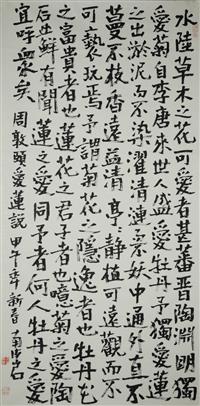 水陸草木之花可愛者甚蕃晉陶淵明獨
愛菊自李唐來世人盛愛牡丹予獨愛蓮
之出淤泥而不染濯清漣而不妖中通外直不
蔓不枝香遠益清亭亭靜植可遠觀而不
可褻玩焉予謂菊花之隱逸者也牡丹花
之富貴者也蓮花之君子者也噫菊之愛陶
后鮮有聞蓮之愛同予者何人牡丹之愛
宜乎眾矣 周敦頤愛蓮說 甲午年新春